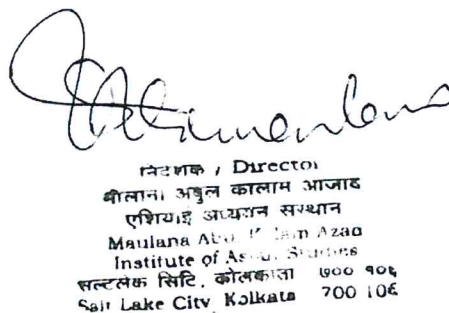 निदेशक / Director
मौलाना अबुल कालाम आजाद
एशियाई अध्ययन संस्थान
Maulana Abu Azad
Institute of Studies
सल्टलेक सिटि, कोलकाता ७०० १०६
Salt Lake City Kolkata 700 106